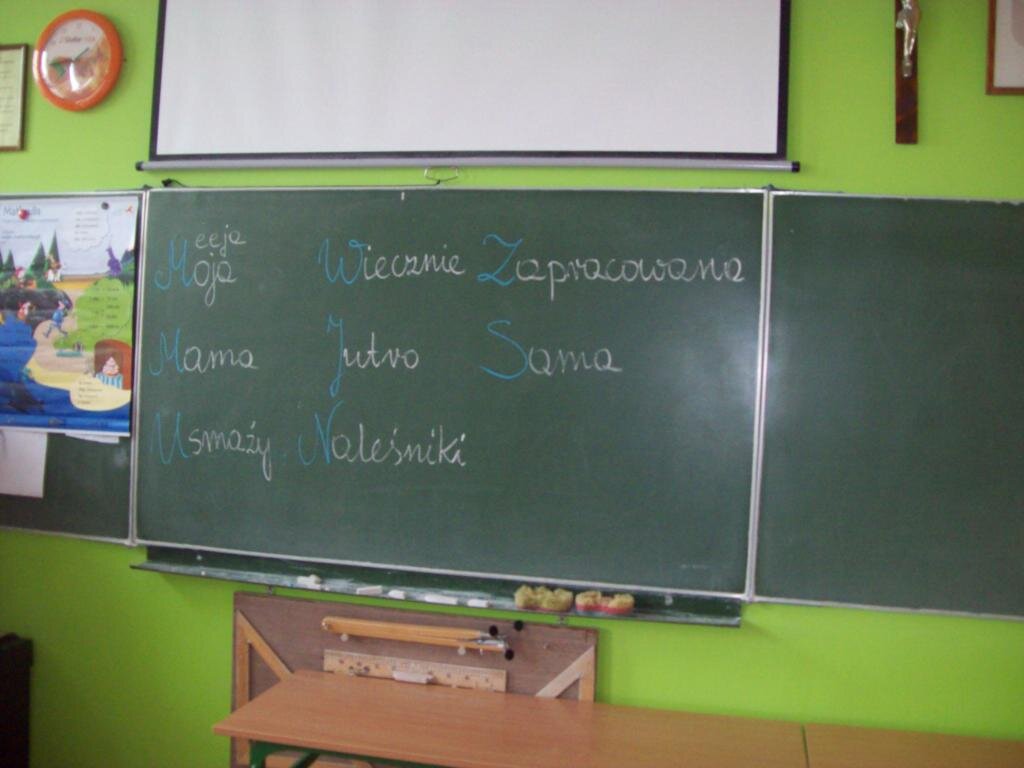 eeja
Moja Wiecznie Zapracowana
Mama Jutro Sama
Usmaży Naleśniki